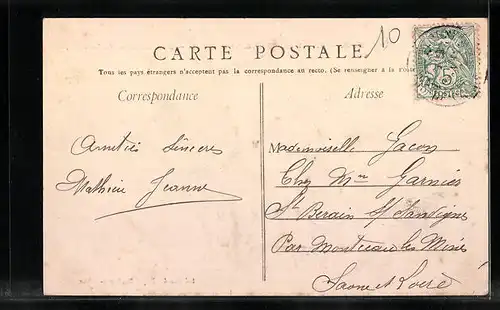 10
CARTE POSTALE
Tous les pays étrangers n'acceptent pas la correspondance au recto. (Se renseigner à la Poste
Correspondance
Adresse
Amitiés Sincères
Mathieu Jeanne
Mademoiselle Jacon
Chez Mme Garnier
St Berain s/ Sanvignes
Par Montceau les Mines
Saone et Loire
5